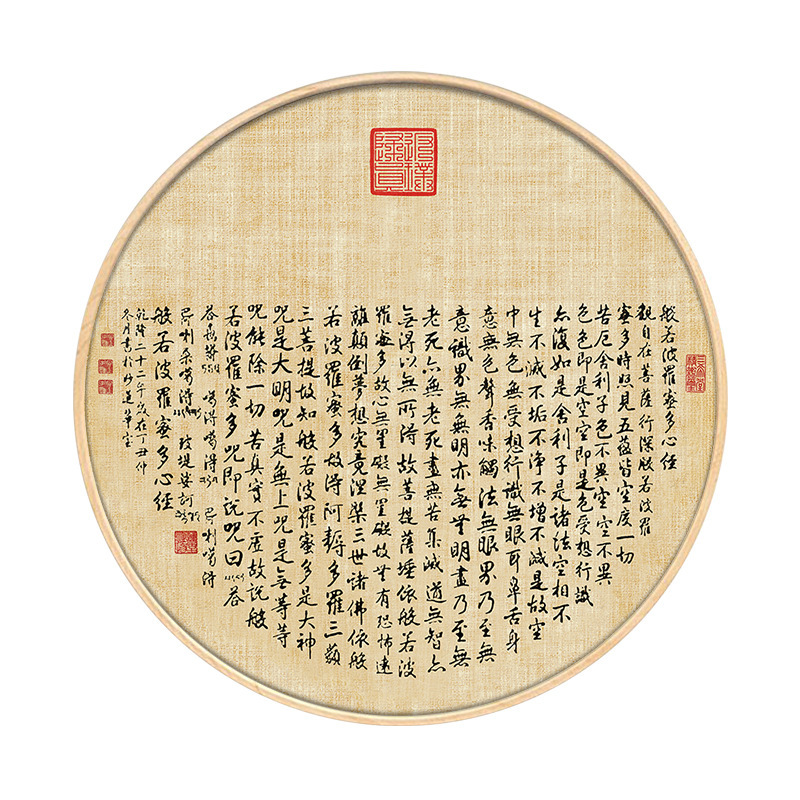 般若波羅蜜多心經
觀自在菩薩行深般若波羅
蜜多時照見五蘊皆空度一切
苦厄舍利子色不異空空不異
色色即是空空即是色受想行識
亦復如是舍利子是諸法空相不
生不滅不垢不淨不增不減是故空
中無色無受想行識無眼耳鼻舌身
意無色聲香味觸法無眼界乃至無
意識界無無明亦無無明盡乃至無
老死亦無老死盡無苦集滅道無智亦
無得以無所得故菩提薩埵依般若波
羅蜜多故心無罣礙無罣礙故無有恐怖遠
離顛倒夢想究竟涅槃三世諸佛依般
若波羅蜜多故得阿耨多羅三藐
三菩提故知般若波羅蜜多是大神
咒是大明咒是無上咒是無等等
咒能除一切苦真實不虛故說般
若波羅蜜多咒即說咒曰
噶得噶得 喇噶得
喇桑噶得 提娑訶
般若波羅蜜多心經
乾隆二十二年歲在丁丑仲
冬月書於妙蓮華室